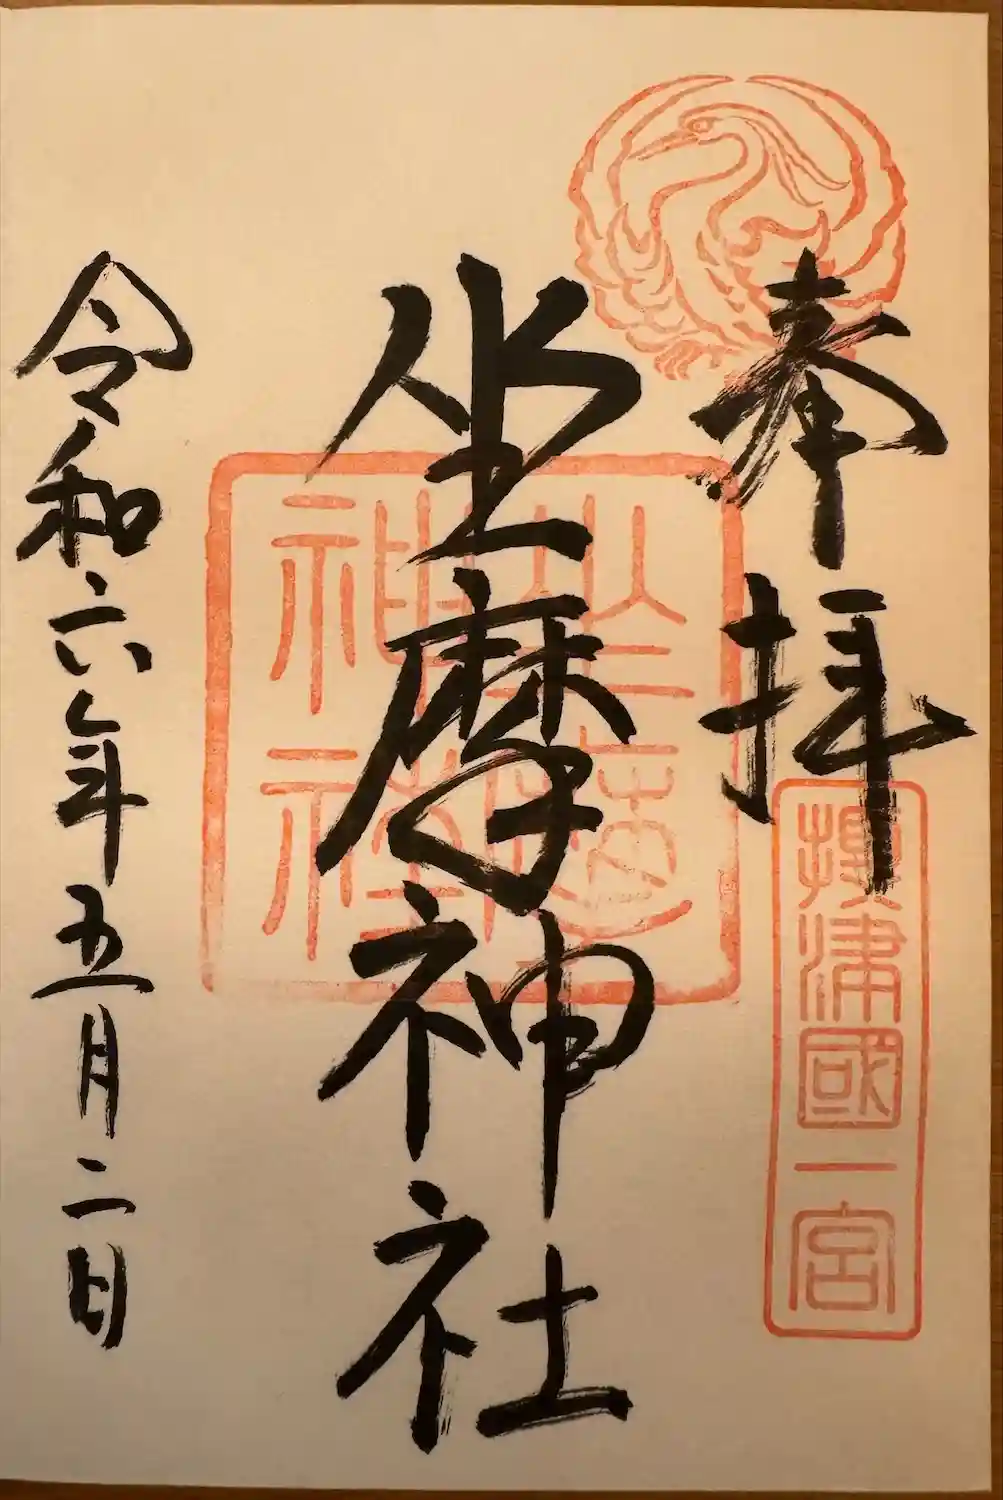 奉拝
摂津國一宮
坐摩神社
神社
令和六年五月二日